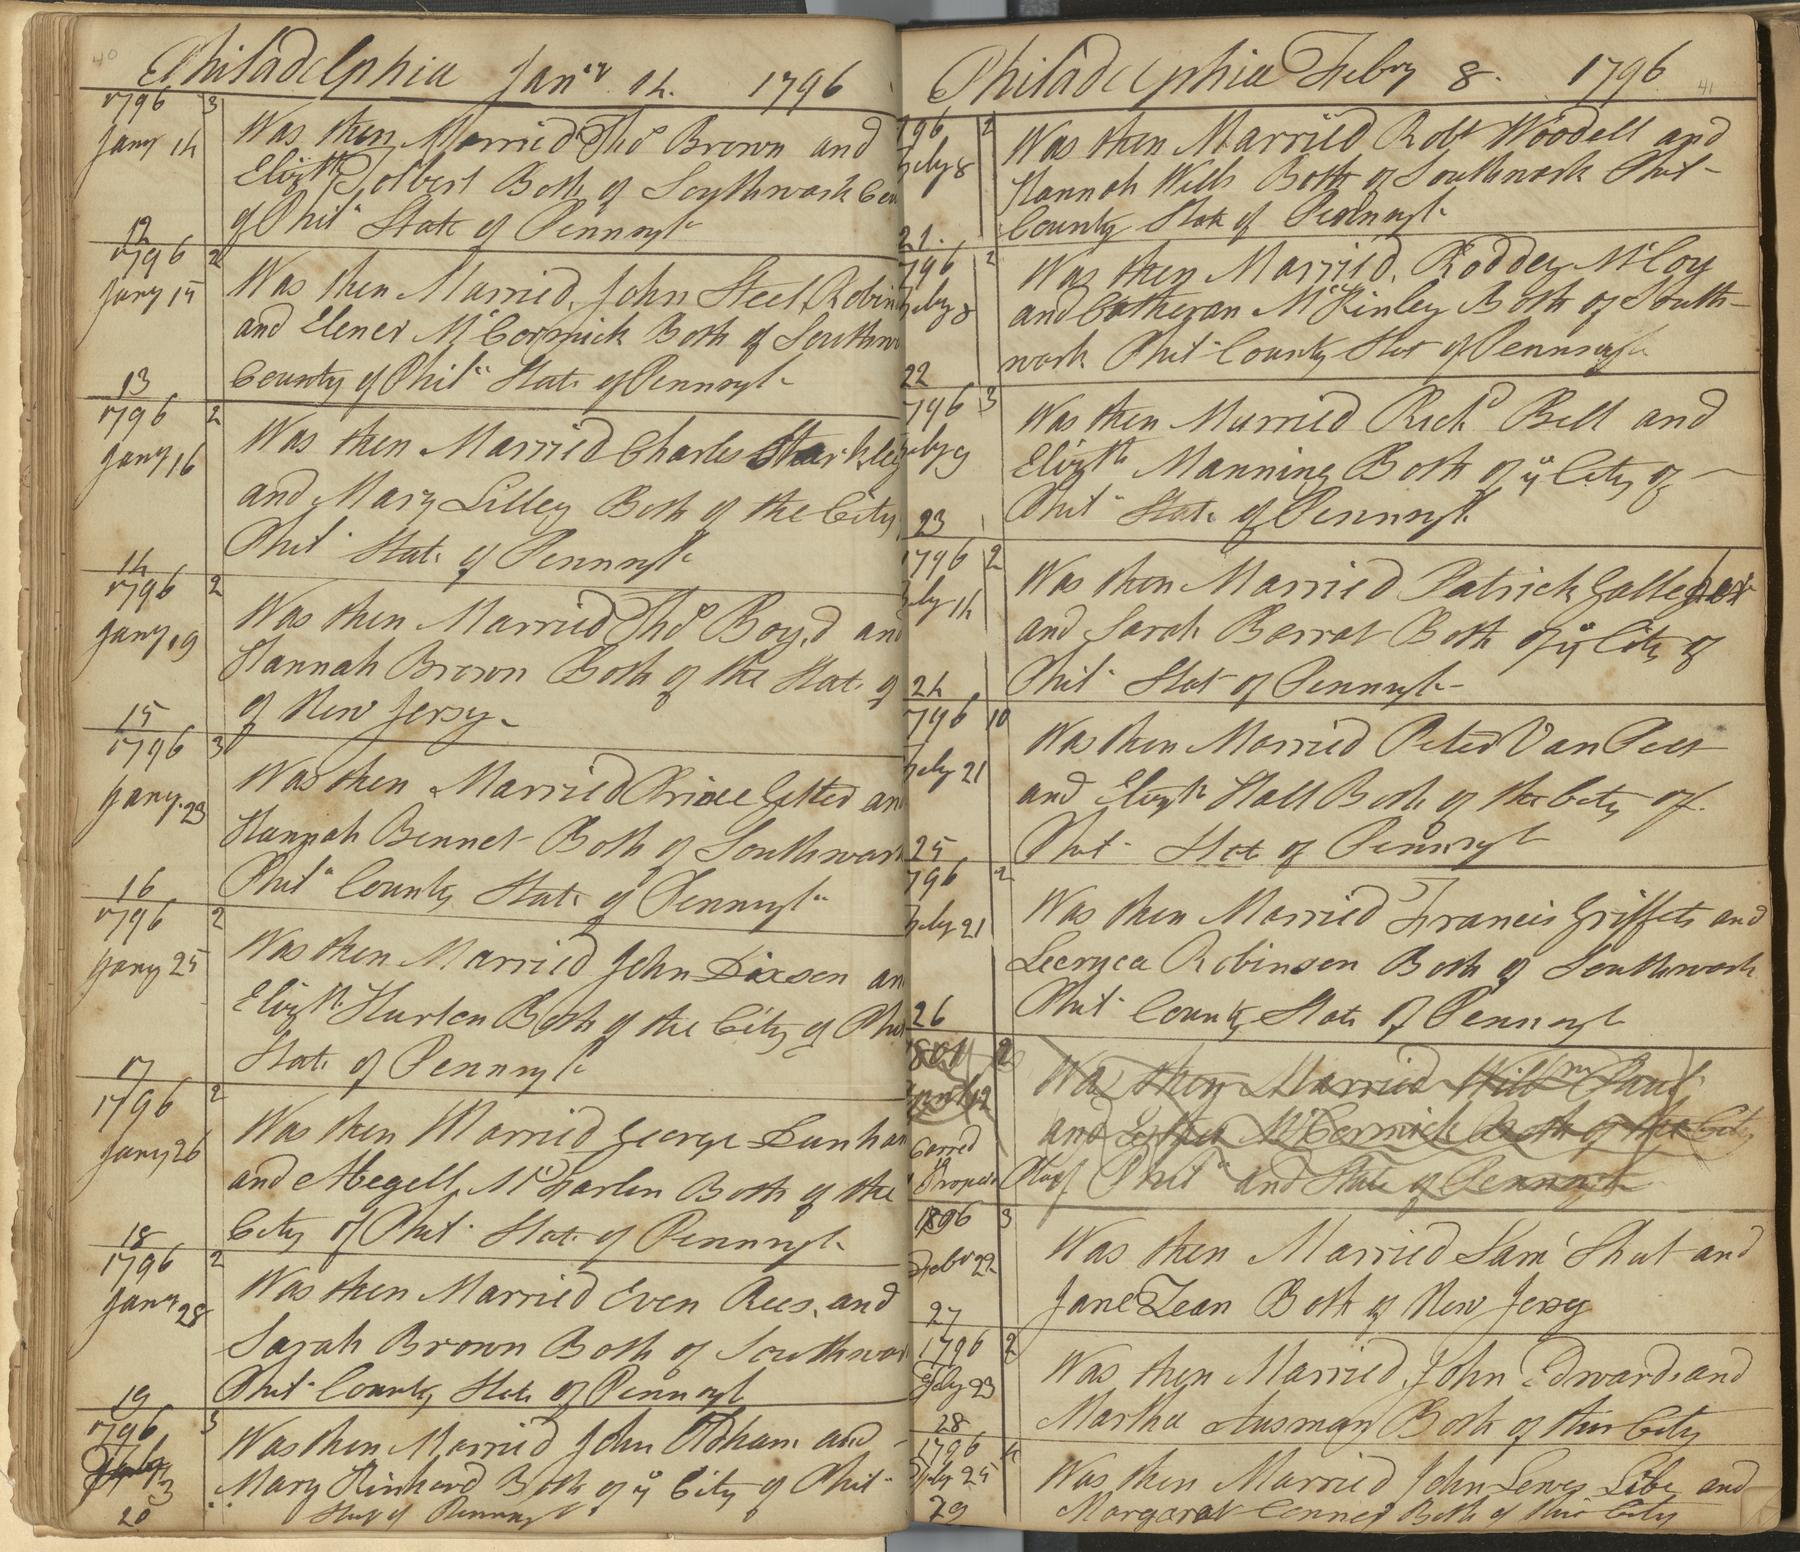 40
Philadelphia Jany 14. 1796
1796 3
Jany 14
Was then Married Thos Brown and
Elizth Tolbert Both of Southwark Cou
of Phila State of Pennsyla
12
1796 2
Jany 15
Was then Married John Steel Robin
and Elener McCormick Both of Southw
County of Phila State of Pennsyla
13
1796 2
Jany 16
Was then Married Charles Starkley
and Mary Lilley Both of the City
Phila State of Pennsyla
14
1796 2
Jany 19
Was then Married Thos Boyd and
Hannah Brown Both of the State of
of New Jersy
15
1796 3
Jany 23
Was then Married Prince and
Hannah Bennet Both of Southwark
Phila County State of Pennsyla
16
1796 2
Jany 25
Was then Married John Dixson an
Elizth Hurlen Both of the City of Phil
State of Pennsyla
17
1796 2
Jany 26
Was then Married George Dunham
and Abegell Both of the
City of Phila State of Pennsyla
18
1796 2
Jany 28
Was then Married Even Rees and
Sarah Brown Both of Southwar
Phila County State of Pennsyla
19
1796 3
3
Was then Married John Oldham and
Mary Rinhard Both of ye City of Phila
State of Pennsyla
20
41
Philadelphia Febry 8. 1796
796 2
Feby 8
Was then Married Robt Woodell and
Hannah Wills Both of Southwark Phil-
County State of Pennsyla
21.
796 2
Feby 8
Was then Married Roddey McCoy
and Catheran McKinley Both of South-
wark Phila County Stat of Pennsyla
22
796 3
Feby 9
Was then Married Richd Bell and
Elizth Manning Both of ye City of
Phila State of Pennsyla
23
1796 2
Feby 14
Was then Married Patrick Gallegher
and Sarah Barrat Both of ye City of
Phila Stat of Pennsyla
24
796 10
Feby 21
Was then Married Peter Van Pelt
and Elizth Hall Both of the City of
Phila State of Pennsyla
25
796 2
Feby 21
Was then Married Francis Griffets and
Robinson Both of Southwark
Phila County State of Pennsyla
26
1801 2
April 12
Carred
Proper
Was then Married Willm Paul
and McCormick Both of the City
of Phila and State of Pennsyla
1796 3
Febr 22
Was then Married Saml Shut and
Jane Zean Both of New Jersy
27
1796 2
Feby 23
Was then Married John Edwards and
Martha Both of this City
28
1796 4
Feby 25
Was then Married John Lewes and
Margarat Conner Both of this City
29